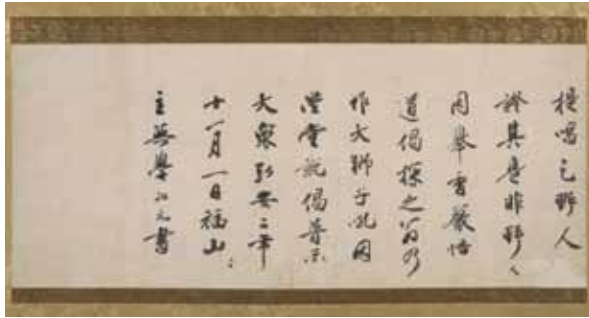 提唱已野人
證其是非野人
因擧香嚴悟
道偈探之翁乃
作大獅子吼因
堂説偈普示
大衆弘安二年
十一月一日福山
主無學祖元書